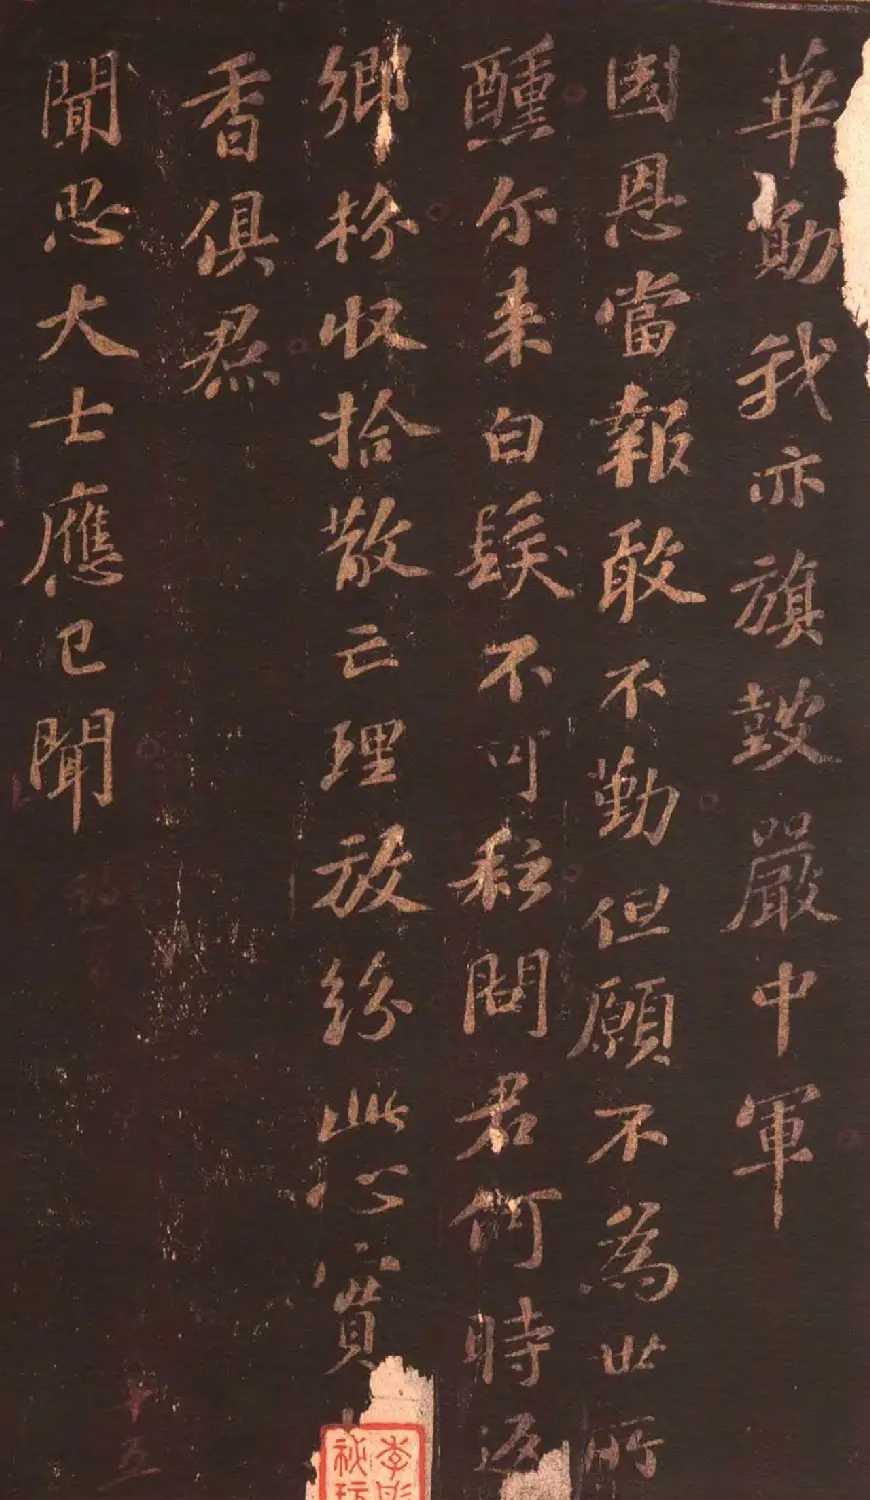 華勛我亦旗鼓嚴中軍
國恩當報敢不勤但願不為世所
醺尔來白髮不可耘問君何時返
鄉枌收拾散亡理放紛此心實
香俱焄
聞思大士應已聞
十五